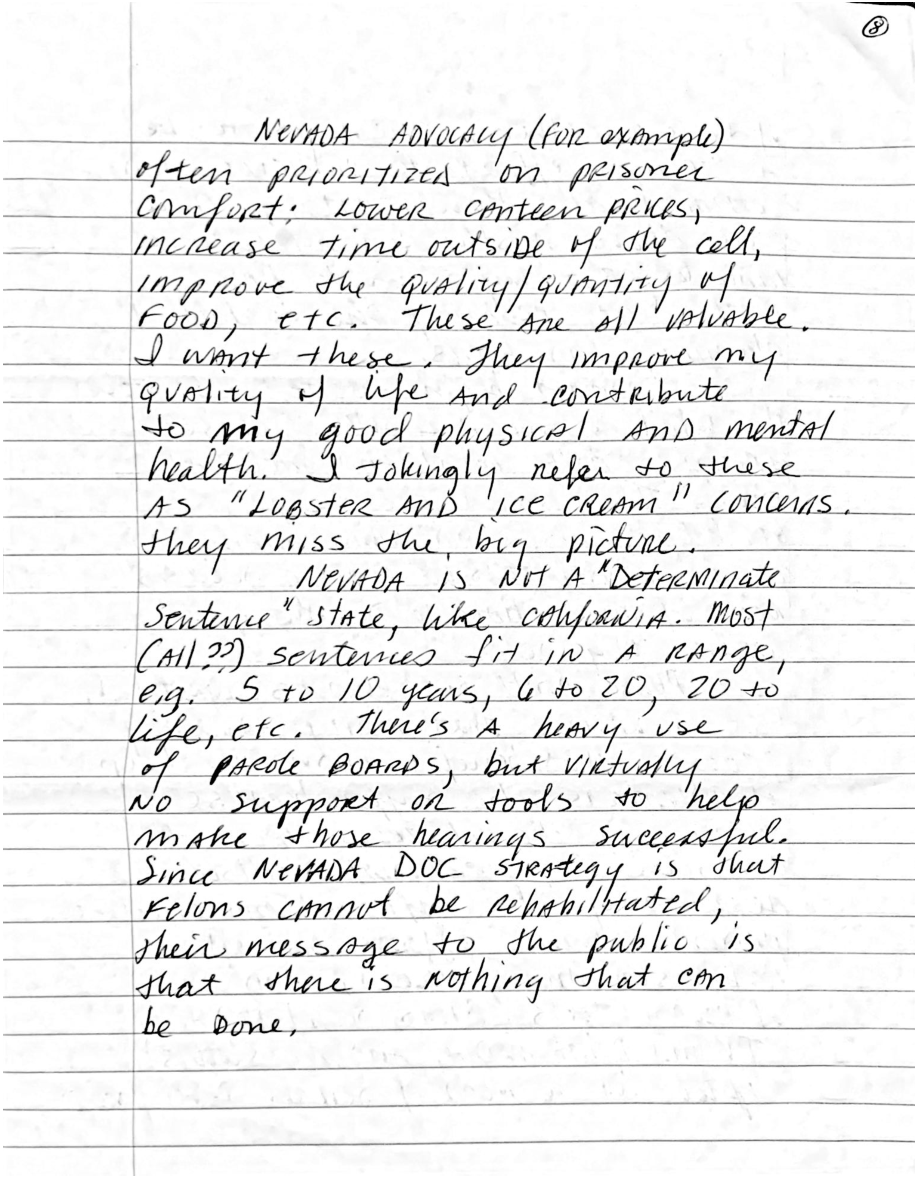 8
NEVADA ADVOCACY (FOR example)
often PRIORITIZED on prisoner
comfort: LOWER CANTEEN PRICES,
increase time outside of the cell,
improve the quality/quantity of
FOOD, etc. These are all valuable.
I want these. They improve my
quality of life and contribute
to my good physical and mental
health. I jokingly refer to these
AS "LOBSTER AND ICE CREAM" concerns.
They miss the big picture.
NEVADA is not a "Determinate
Sentence" state, like California. Most
(All??) sentences fit in a range,
e.g. 5 to 10 years, 6 to 20, 20 to
life, etc. There's a heavy use
of PAROLE BOARDS, but virtually
NO support or tools to help
make those hearings successful.
Since NEVADA DOC strategy is that
Felons cannot be rehabilitated,
their message to the public is
that there is nothing that can
be Done.